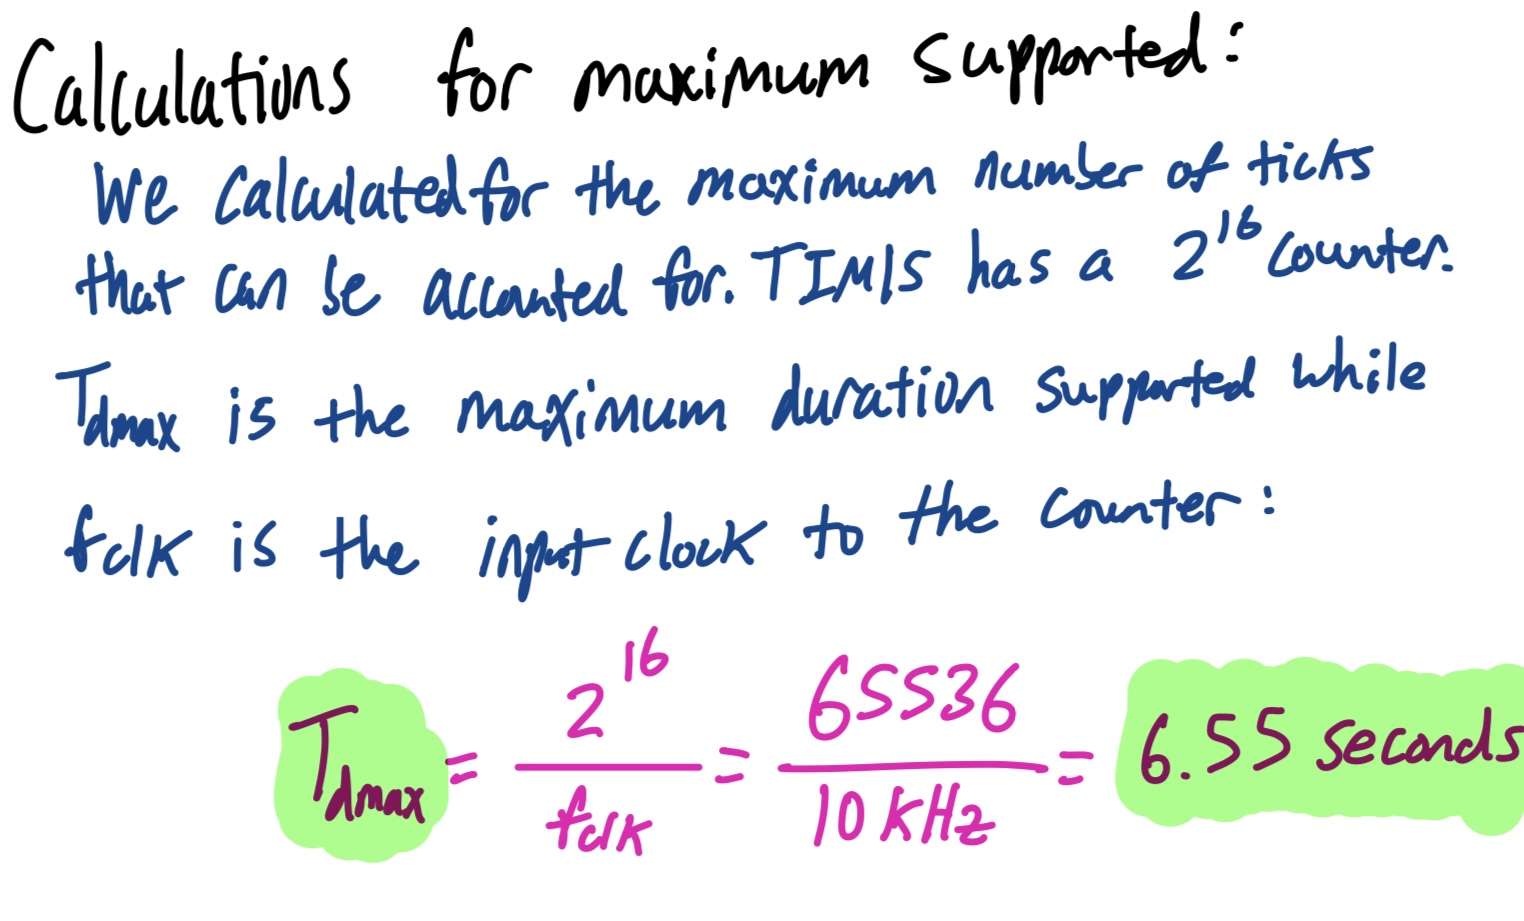 Calculations for maximum supported:
We calculated for the maximum number of ticks
that can be accounted for. TIM15 has a 2^16 counter.
Tdmax is the maximum duration supported while
fclk is the input clock to the counter:
Tdmax = 2^16 / fclk = 65536 / 10 kHz = 6.55 seconds